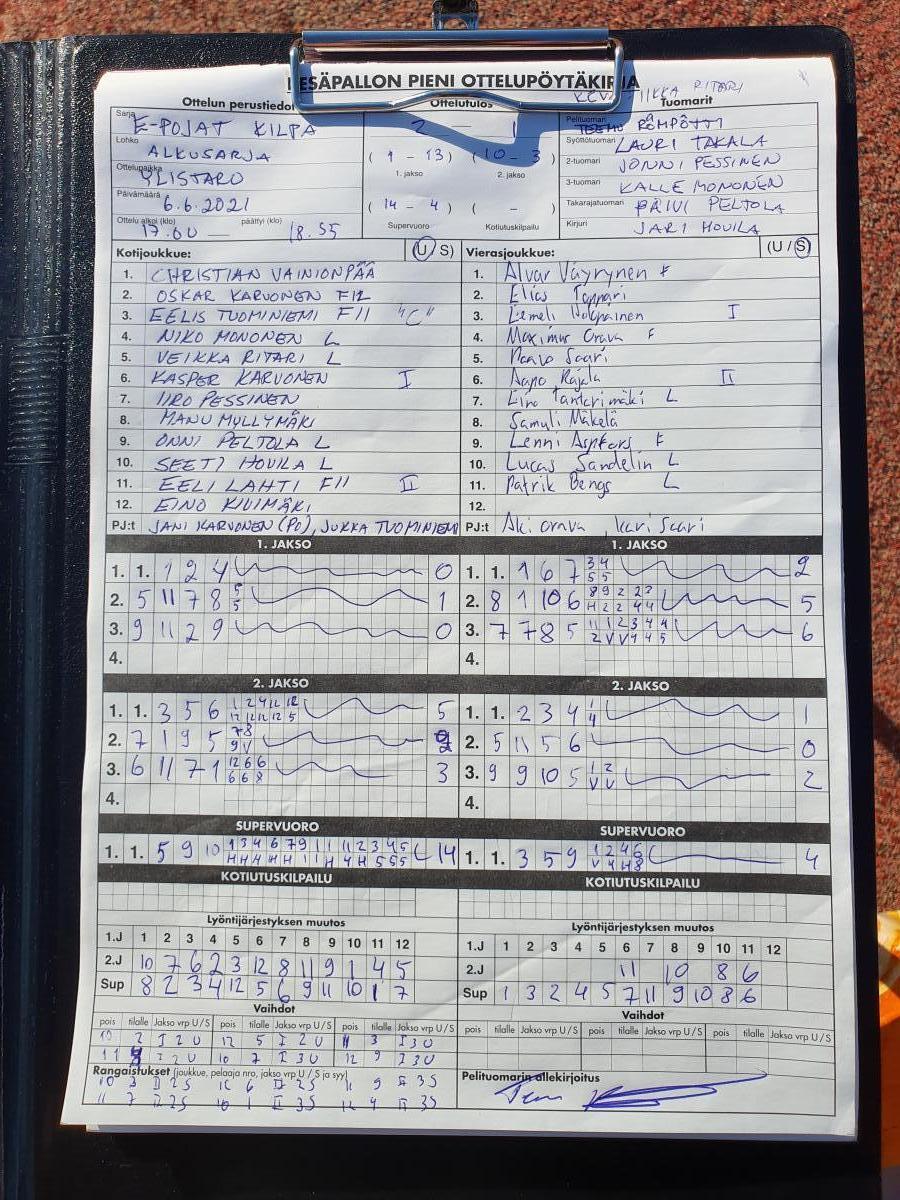 PESÄPALLON PIENI OTTELUPÖYTÄKIRJA
Ottelun perustiedot
Ottelutulos
Tuomarit
RITARI
Sarja
E-POJAT KILPA
Lohko
ALKUSARJA
Ottelupaikka
YLISTARO
Päivämäärä
6.6.2021
Ottelu alkoi (klo) päättyi (klo)
17.00 — 18.55
2 — 1
( 1 - 13 ) ( 10 - 3 )
1. jakso 2. jakso
( 14 - 4 ) ( - )
Supervuoro Kotiutuskilpailu
Pelituomari
RÖMPÖTTI
Syöttötuomari LAURI TAKALA
2-tuomari JONNI PESSINEN
3-tuomari KALLE MONONEN
Takarajatuomari PÄIVI PELTOLA
Kirjuri JARI HOUILA
Kotijoukkue: (U/S)
1. CHRISTIAN VAINIONPÄÄ
2. OSKAR KARVONEN
3. EELIS TUOMINIEMI "C"
4. NIKO MONONEN L
5. VEIKKA RITARI L
6. KASPER KARVONEN I
7. IIRO PESSINEN
8. MANU MYLLYMÄKI
9. ONNI PELTOLA L
10. SEETI HOUILA L
11. EELI LAHTI II
12. EINO KIVIMÄKI
PJ:t JANI KARVONEN (PO), JUKKA TUOMINIEMI
Vierasjoukkue: (U/S)
1. Alvar Väyrynen F
2. Elias
3. I
4. Maximus Orava F
5. Paavo Saari
6. Aapo Rajala II
7. Eino L
8. Samuli Mäkelä
9. Lenni F
10. Lucas Sandelin L
11. Patrik Bengs L
12.
PJ:t Aki Orava, Kari Saari
1. JAKSO
1. 1. 1 2 4 0
2. 5 11 7 8 5 5 1
3. 9 11 2 9 0
4.
1. JAKSO
1. 1. 1 6 7 3 4 5 5 2
2. 8 1 10 6 5
3. 7 7 8 5 6
4.
2. JAKSO
1. 1. 3 5 6 5
2. 7 1 9 5 7 8 9 V
3. 6 11 7 1 12 6 6 6 6 8 3
4.
2. JAKSO
1. 1. 2 3 4 1
2. 5 11 5 6 0
3. 9 9 10 5 1 2 V V 2
4.
SUPERVUORO
1. 1. 5 9 10 14
SUPERVUORO
1. 1. 3 5 9 4
KOTIUTUSKILPAILU
KOTIUTUSKILPAILU
Lyöntijärjestyksen muutos
1.J 1 2 3 4 5 6 7 8 9 10 11 12
2.J 10 7 6 2 3 12 8 11 9 1 4 5
Sup 8 2 3 4 12 5 6 9 11 10 1 7
Lyöntijärjestyksen muutos
1.J 1 2 3 4 5 6 7 8 9 10 11 12
2.J 11 10 8 6
Sup 1 3 2 4 5 7 11 9 10 8 6
Vaihdot
pois tilalle Jakso vrp U/S pois tilalle Jakso vrp U/S pois tilalle Jakso vrp U/S
10 2 I 2 U 12 5 I 2 U 11 3 I 3 U
11 I 2 U 10 7 I 3 U 12 9 I 3 U
Vaihdot
pois tilalle Jakso vrp U/S pois tilalle Jakso vrp U/S pois tilalle Jakso vrp U/S
Rangaistukset (joukkue, pelaaja nro, jakso vrp U/S ja syy)
10 3 II 2S 12 6 II 2S 11 9 II 3S
11 7 II 2S 10 1 II 3S 12 4 II 3S
Pelituomarin allekirjoitus